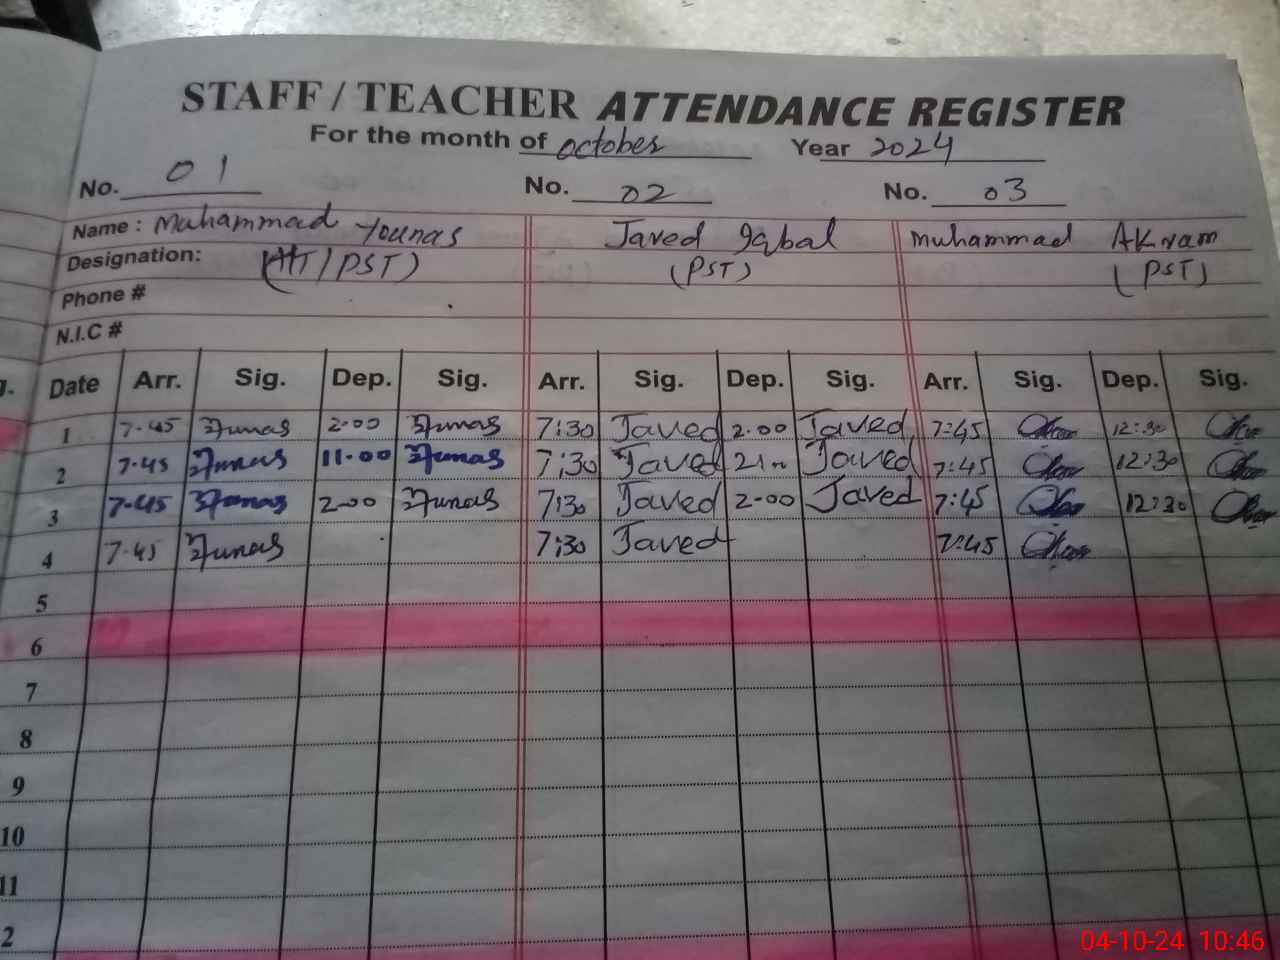 STAFF / TEACHER ATTENDANCE REGISTER
For the month of October Year 2024
No. 01 No. 02 No. 03
Name : Muhammad Younas Javed Iqbal Muhammad AKram
Designation: (HT/PST) (PST) (PST)
Phone #
N.I.C #
Date Arr. Sig. Dep. Sig. Arr. Sig. Dep. Sig. Arr. Sig. Dep. Sig.
1 7-45 Younas 2-00 Younas 7:30 Javed 2.00 Javed 7:45 12:30
2 7-45 Younas 11-00 Younas 7:30 Javed Javed 7:45 12:30
3 7-45 Younas 2-00 Younas 7:30 Javed 2-00 Javed 7:45 12:30
4 7-45 Younas 7:30 Javed 7:45
5
6
7
8
9
10
11
2
04-10-24 10:46